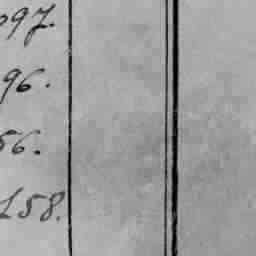 097.
96.
56.
158.